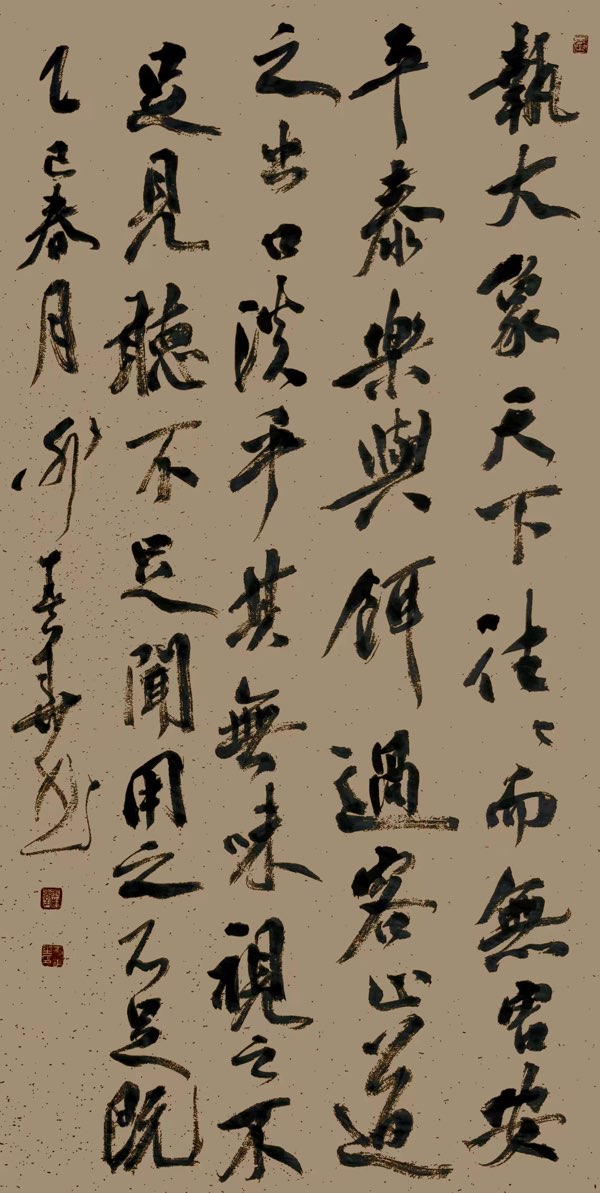 執大象天下往〻而無害安
平泰樂與餌過客止道
之出口淡乎其無味視之不
足見聽不足聞用之不足既
乙巳春月